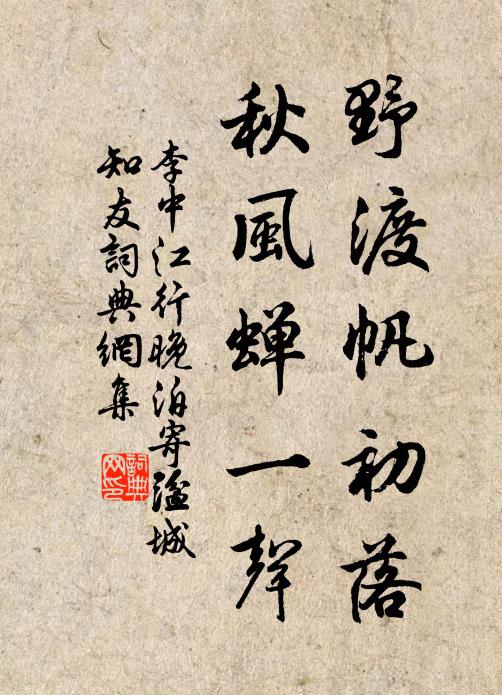 野渡帆初落
秋風蝉一聲
李中江行晚泊寄湓城
知友詞典網集
詞典
网印